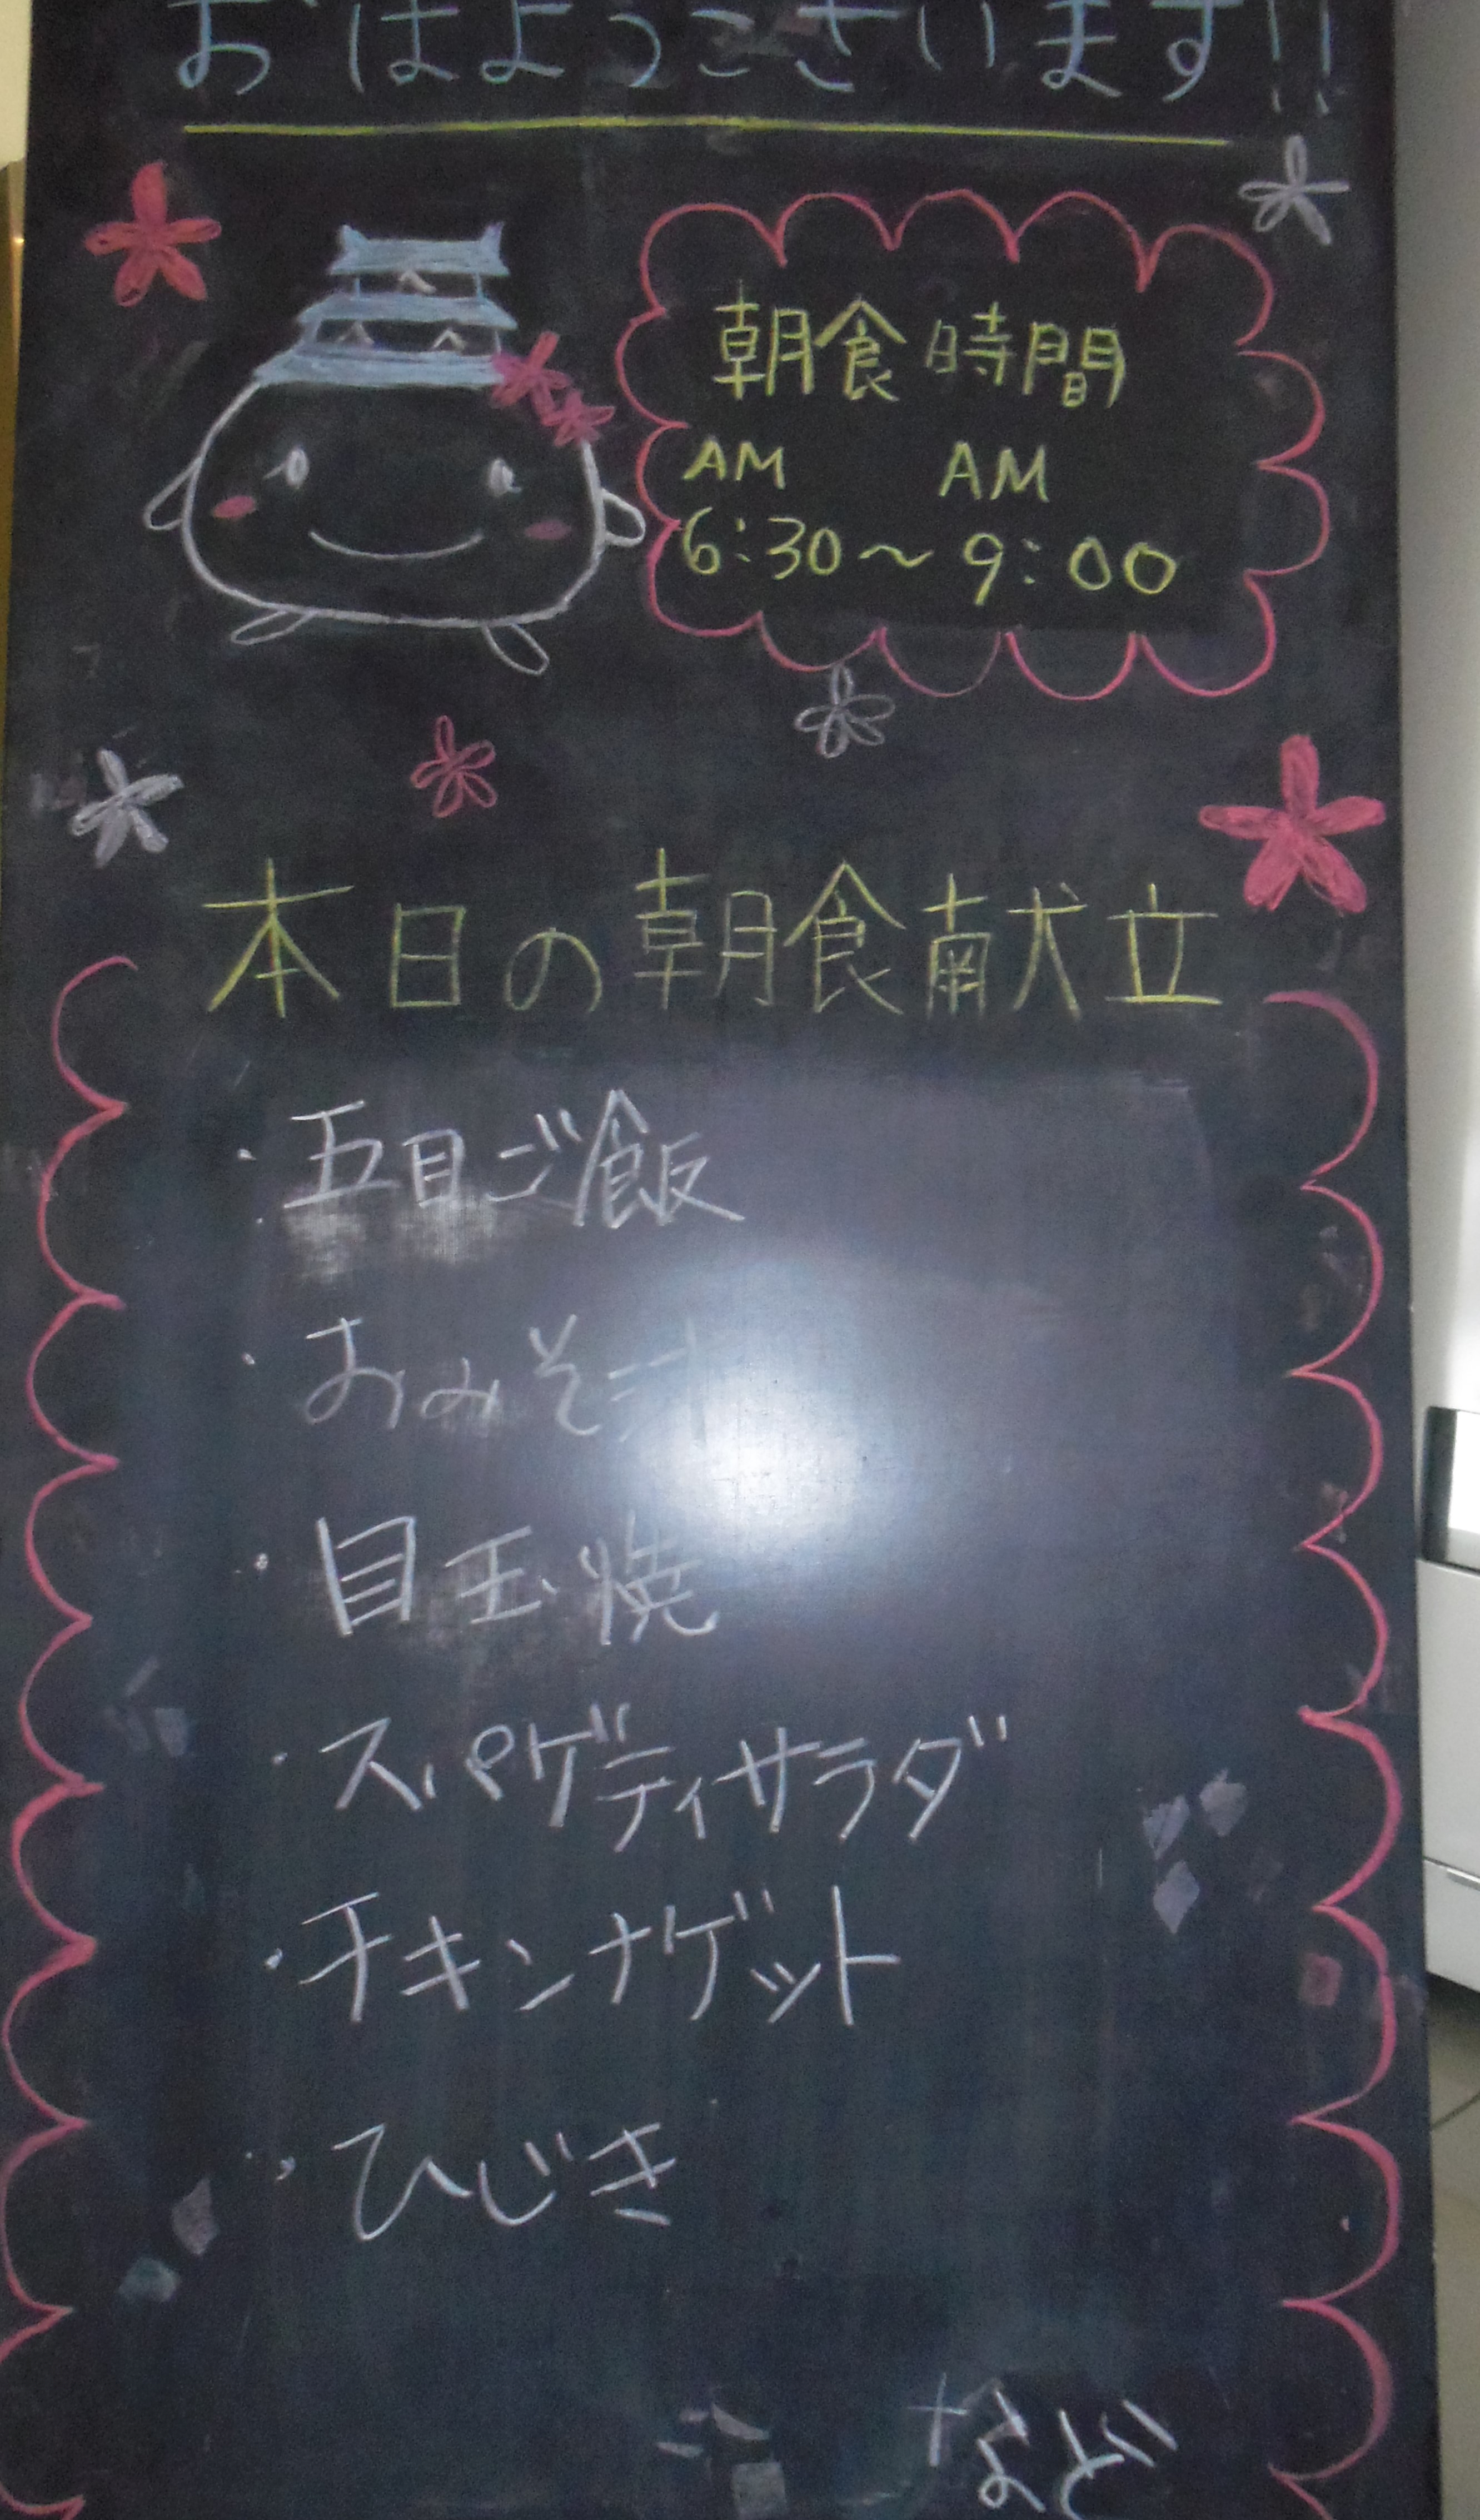 おはようございます!!
朝食時間
AM AM
6:30〜9:00
本日の朝食献立
・五目ご飯
・おみそ汁
・目玉焼
・スパゲティサラダ
・チキンナゲット
・ひじき
など